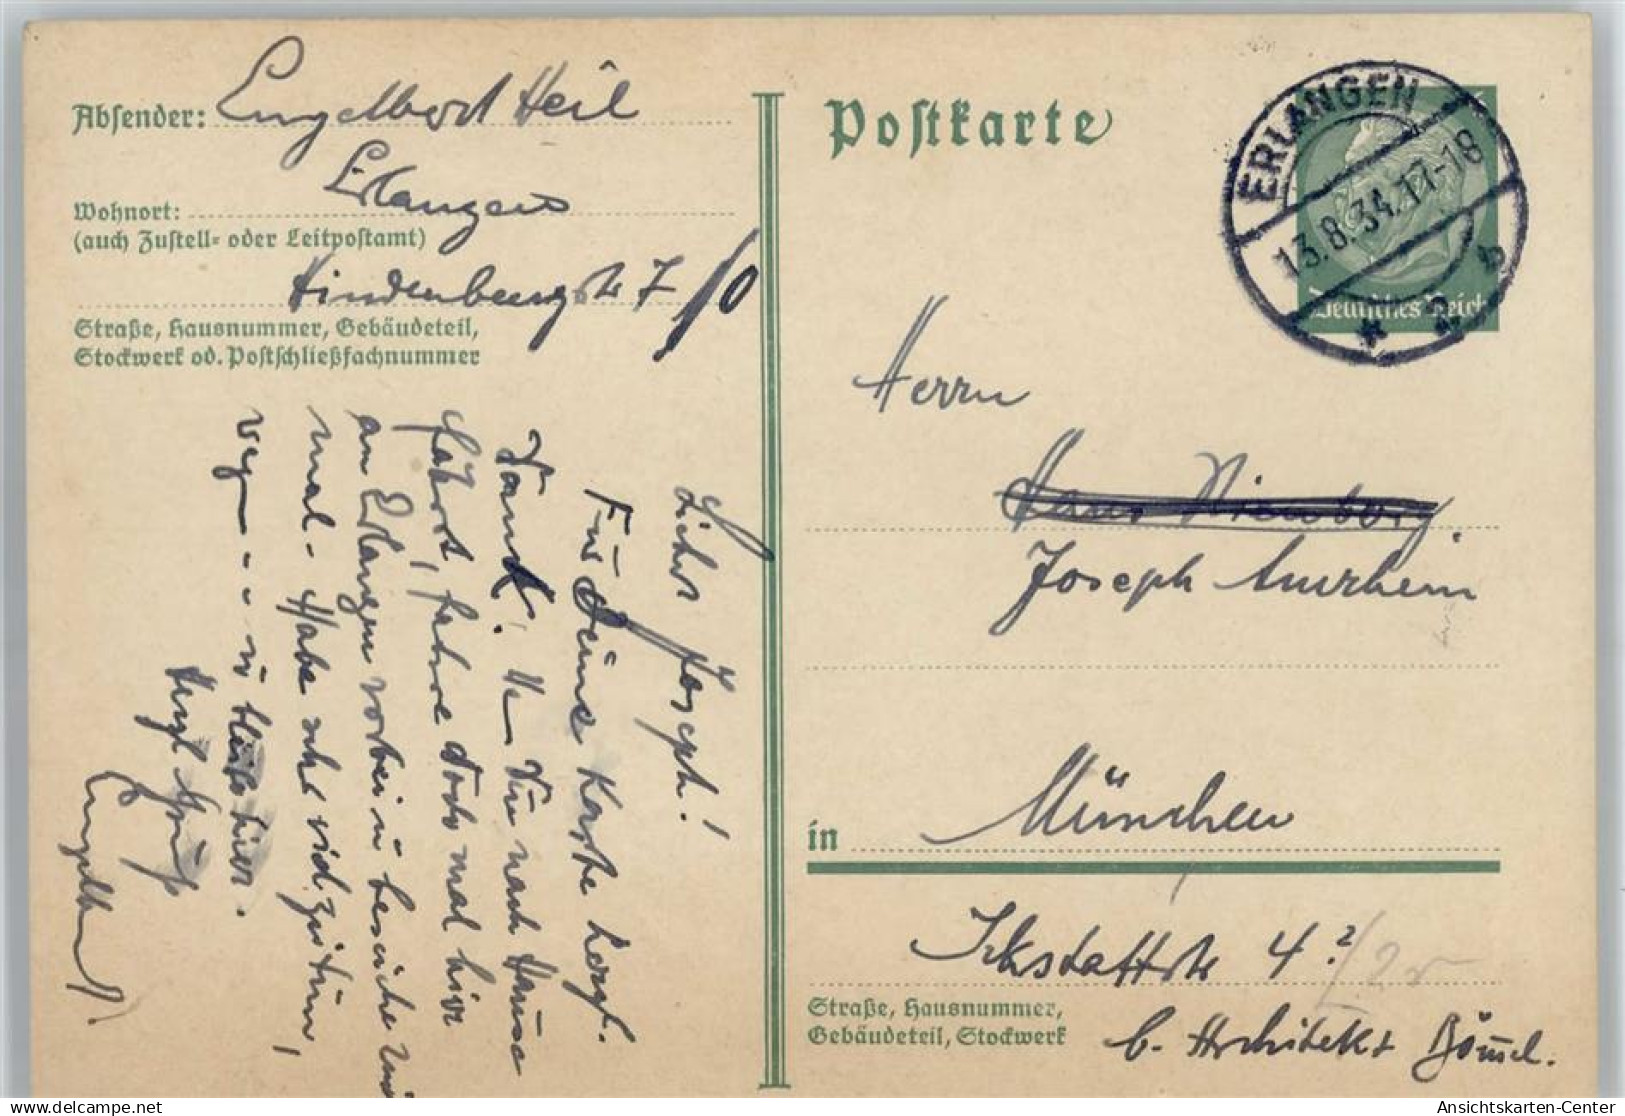 Absender: Engelbert Heil
Erlangen
Wohnort:
(auch Zustell- oder Leitpostamt)
Hindenburgstr 7/0
Straße, Hausnummer, Gebäudeteil,
Stockwerk od. Postschließfachnummer
Lieber Joseph!
Für Deine Karte herzl.
Dank! Du nach Hause
fährst, fahre doch mal hier
an Erlangen vorbei u besuche
mal. Habe viel zu tun,
weg - - - u bleib hier.
Herzl Gruß
Engelbert
Postkarte
ERLANGEN
13.8.34.17-18
Deutsches Reich
Herrn
Joseph Amrhein
in München
Ickstattstr 4
Straße, Hausnummer,
Gebäudeteil, Stockwerk
b. Architekt
Ansichtskarten-Center